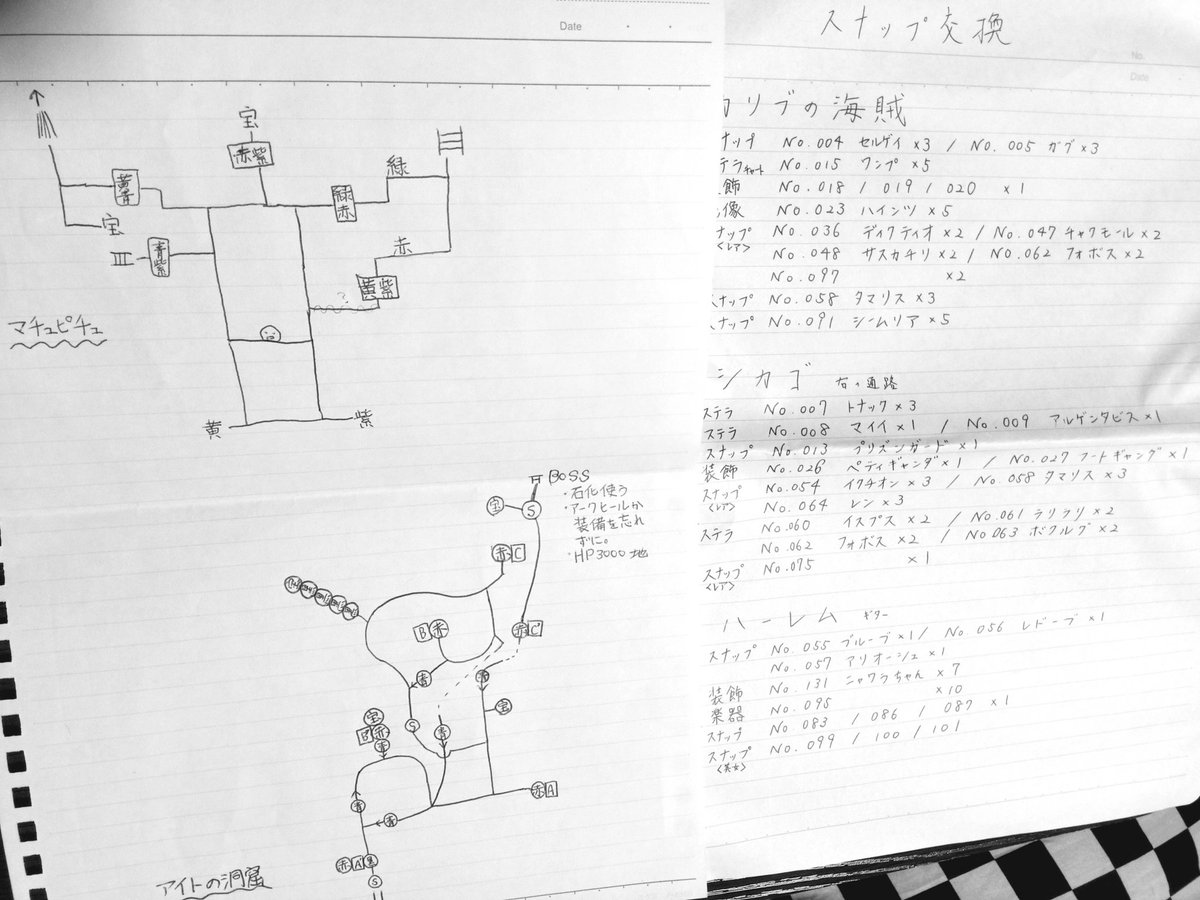 Date
宝
赤紫
緑
黄青
緑赤
宝
赤
青紫
黄紫
?
マチュピチュ
黄
紫
BOSS
・石化使う
・アークヒールか
装備を忘れ
ずに。
・HP3000地
宝
S
赤 C
B 赤
赤 C'
青
青
宝
宝
S
B' 赤
青
青
赤 A
青
青
赤 A'
S
アイトの洞窟
スナップ交換
No.
Date
カリブの海賊
ナップ No.004 セルゲイ×3 / No.005 ガブ×3
テラチャート No.015 ワンプ×5
飾 No.018 / 019 / 020 ×1
像 No.023 ハインツ×5
ナップ No.036 ディクティオ×2 / No.047 チャクモール×2
<レア> No.048 サスカチリ×2 / No.062 フォボス×2
No.097 ×2
スナップ No.058 タマリス×3
スナップ No.091 シームリア×5
シカゴ 右の通路
ステラ No.007 トナック×3
ステラ No.008 マイイ×1 / No.009 アルゲンタビス×1
スナップ No.013 プリズンガード×1
装飾 No.026 ペティギャング×1 / No.027 フートギャング×1
スナップ No.054 イクチオン×3 / No.058 タマリス×3
<レア> No.064 レン×3
ステラ No.060 イスプス×2 / No.061 テリフリ×2
No.062 フォボス×2 / No.063 ボクルグ×2
スナップ No.075 ×1
<レア>
ハーレム ギター
スナップ No.055 ブルーブ×1 / No.056 レドーブ×1
No.057 アリオーシュ×1
装飾 No.131 ニャウラちゃん×7
楽器 No.095 ×10
スナップ No.083 / 086 / 087 ×1
スナップ No.099 / 100 / 101
<美女>